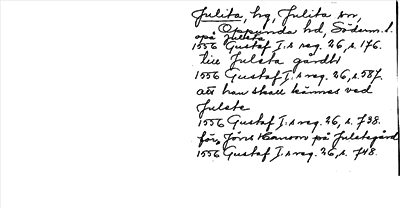 Julita, hg, Julita sn,
Oppunda hd, Söderm. l.
opå Julsta
1556 Gustaf I:s reg. 26, s. 176.
till Julsta gårdh
1556 Gustaf I:s reg. 26, s. 587.
att han skall kännes ved
Julste
1556 Gustaf I:s reg. 26, s. 738.
för Jöns Hanson på Julstegård
1556 Gustaf I:s reg. 26, s. 748.